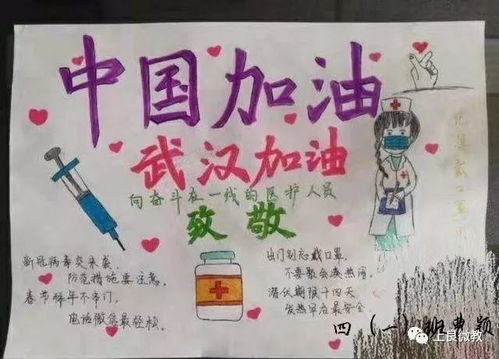 中国加油
武汉加油
向奋斗在一线的医护人员
致敬
新冠病毒突来袭，
防范措施要注意。
春节拜年不串门，
电话微信最轻松。
出门别忘戴口罩，
不要聚会凑热闹，
潜伏期限十四天，
最安全
戴口罩
四（一）班
上良微教